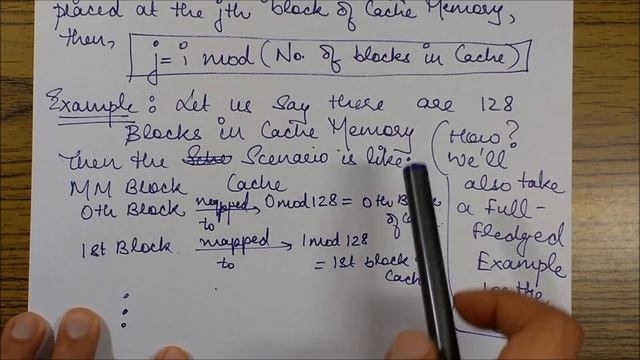 placed at the jth block of Cache Memory,
then, j = i mod (No. of blocks in Cache)
Example : Let us say there are 128
Blocks in Cache Memory
Then the Scenario is like:
MM Block Cache
0th Block mapped to → 0 mod 128 = 0th
of
1st Block mapped to → 1 mod 128
= 1st block
(How?
We'll
also take
a full-
fledged
Example